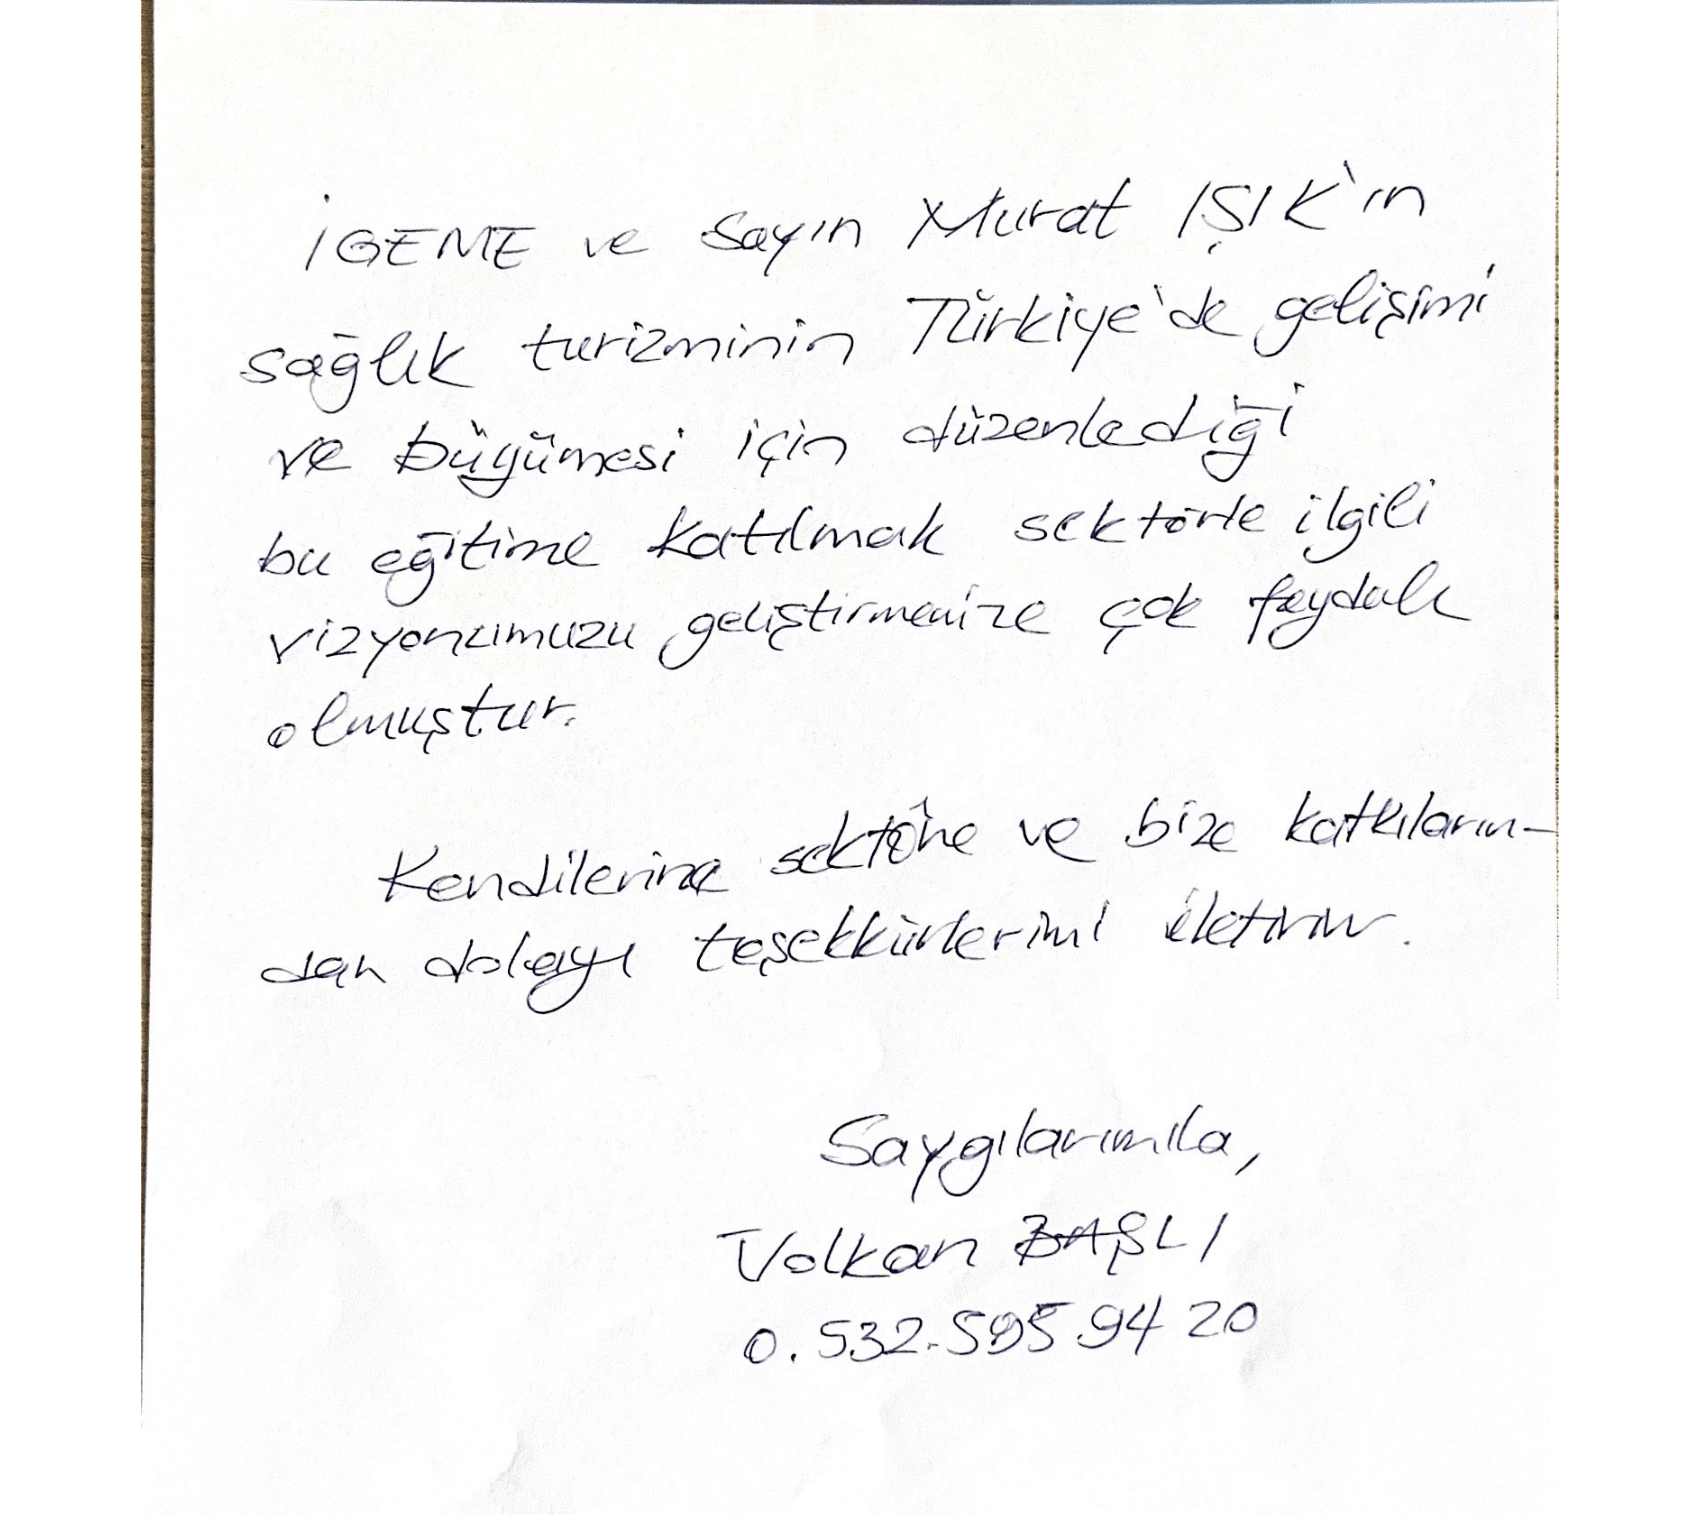 İGEME ve Sayın Murat IŞIK'ın
sağlık turizminin Türkiye'de gelişimi
ve büyümesi için düzenlediği
bu eğitime katılmak sektörle ilgili
vizyonumuzu geliştirmemize çok faydalı
olmuştur.
Kendilerine sektöre ve bize katkıların-
dan dolayı teşekkürlerimi iletirim.
Saygılarımla,
Volkan BAŞLI
0.532.595 94 20